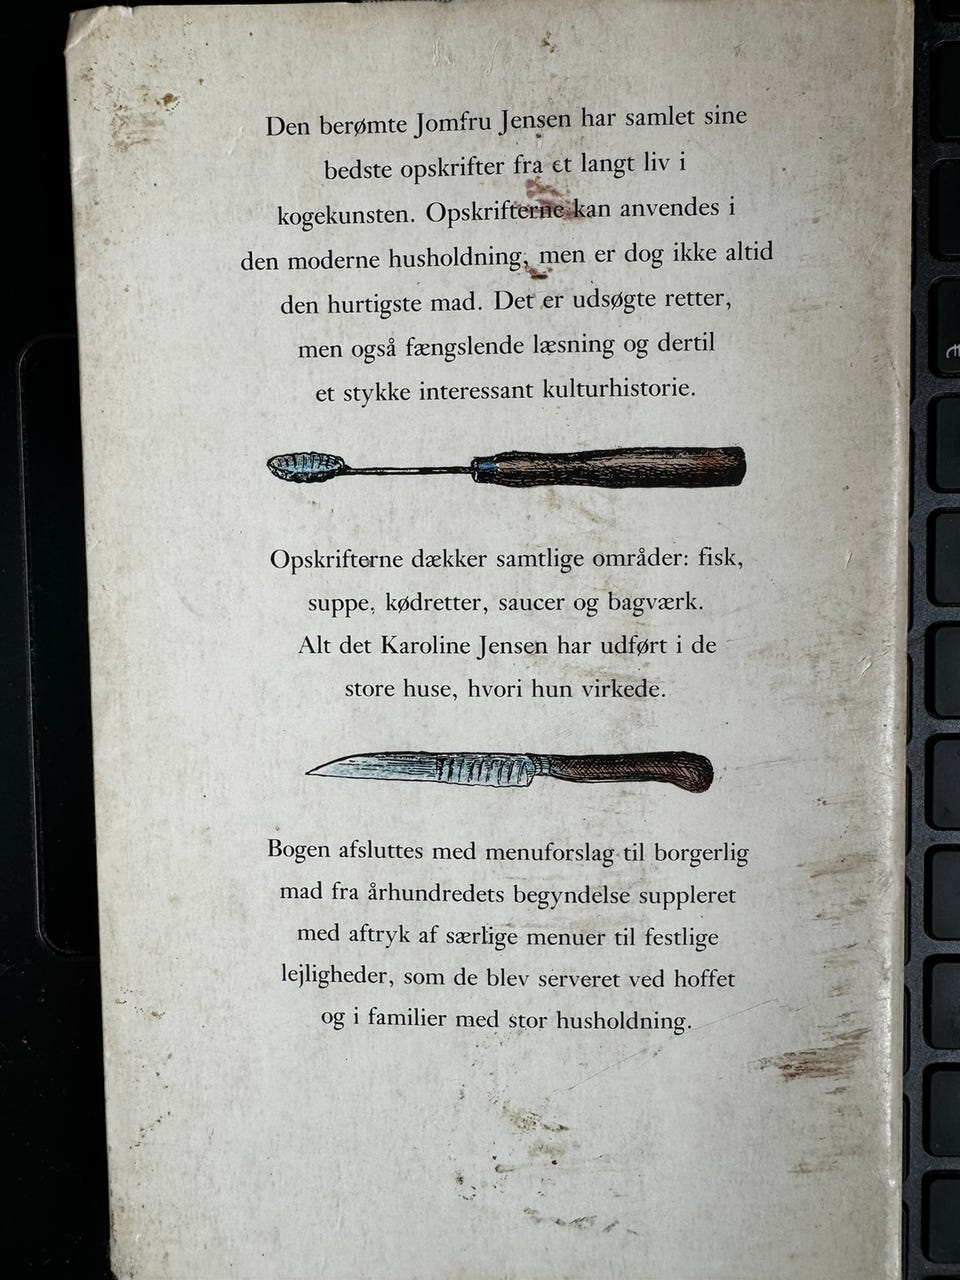 Den berømte Jomfru Jensen har samlet sine
bedste opskrifter fra et langt liv i
kogekunsten. Opskrifterne kan anvendes i
den moderne husholdning, men er dog ikke altid
den hurtigste mad. Det er udsøgte retter,
men også fængslende læsning og dertil
et stykke interessant kulturhistorie.
Opskrifterne dækker samtlige områder: fisk,
suppe, kødretter, saucer og bagværk.
Alt det Karoline Jensen har udført i de
store huse, hvori hun virkede.
Bogen afsluttes med menuforslag til borgerlig
mad fra århundredets begyndelse suppleret
med aftryk af særlige menuer til festlige
lejligheder, som de blev serveret ved hoffet
og i familier med stor husholdning.